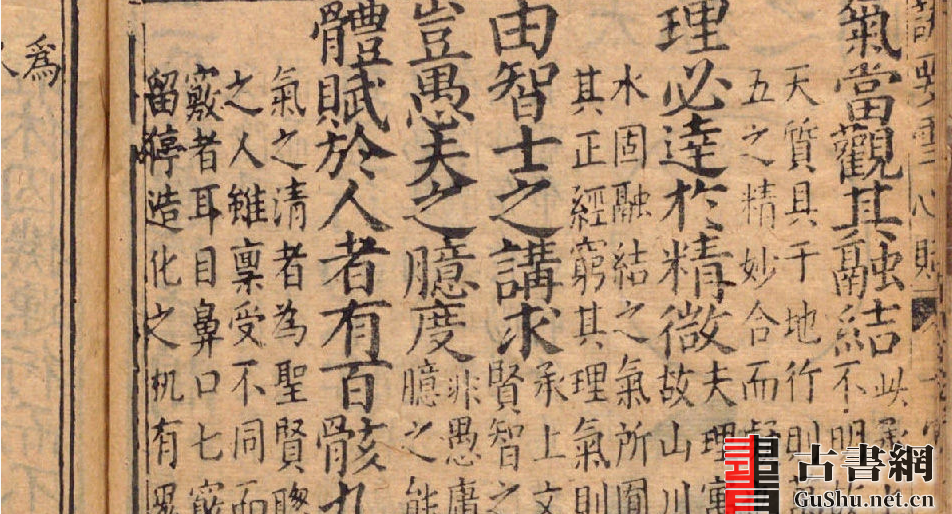 心賦
氣當觀其融結
此承
不明
天質具于地行則
五之精妙合而
理必達於精微
夫理寓
故山川
水固融結之氣所囿
其正經窮其理氣則
由智士之講求
承上文
賢智之
豈愚夫之臆度
非愚庸
臆之能
體賦於人者有百骸九
氣之清者為聖賢聰
之人雖稟受不同而
竅者耳目鼻口七竅
留停造化之机有
為
古書網
GuShu.net.cn